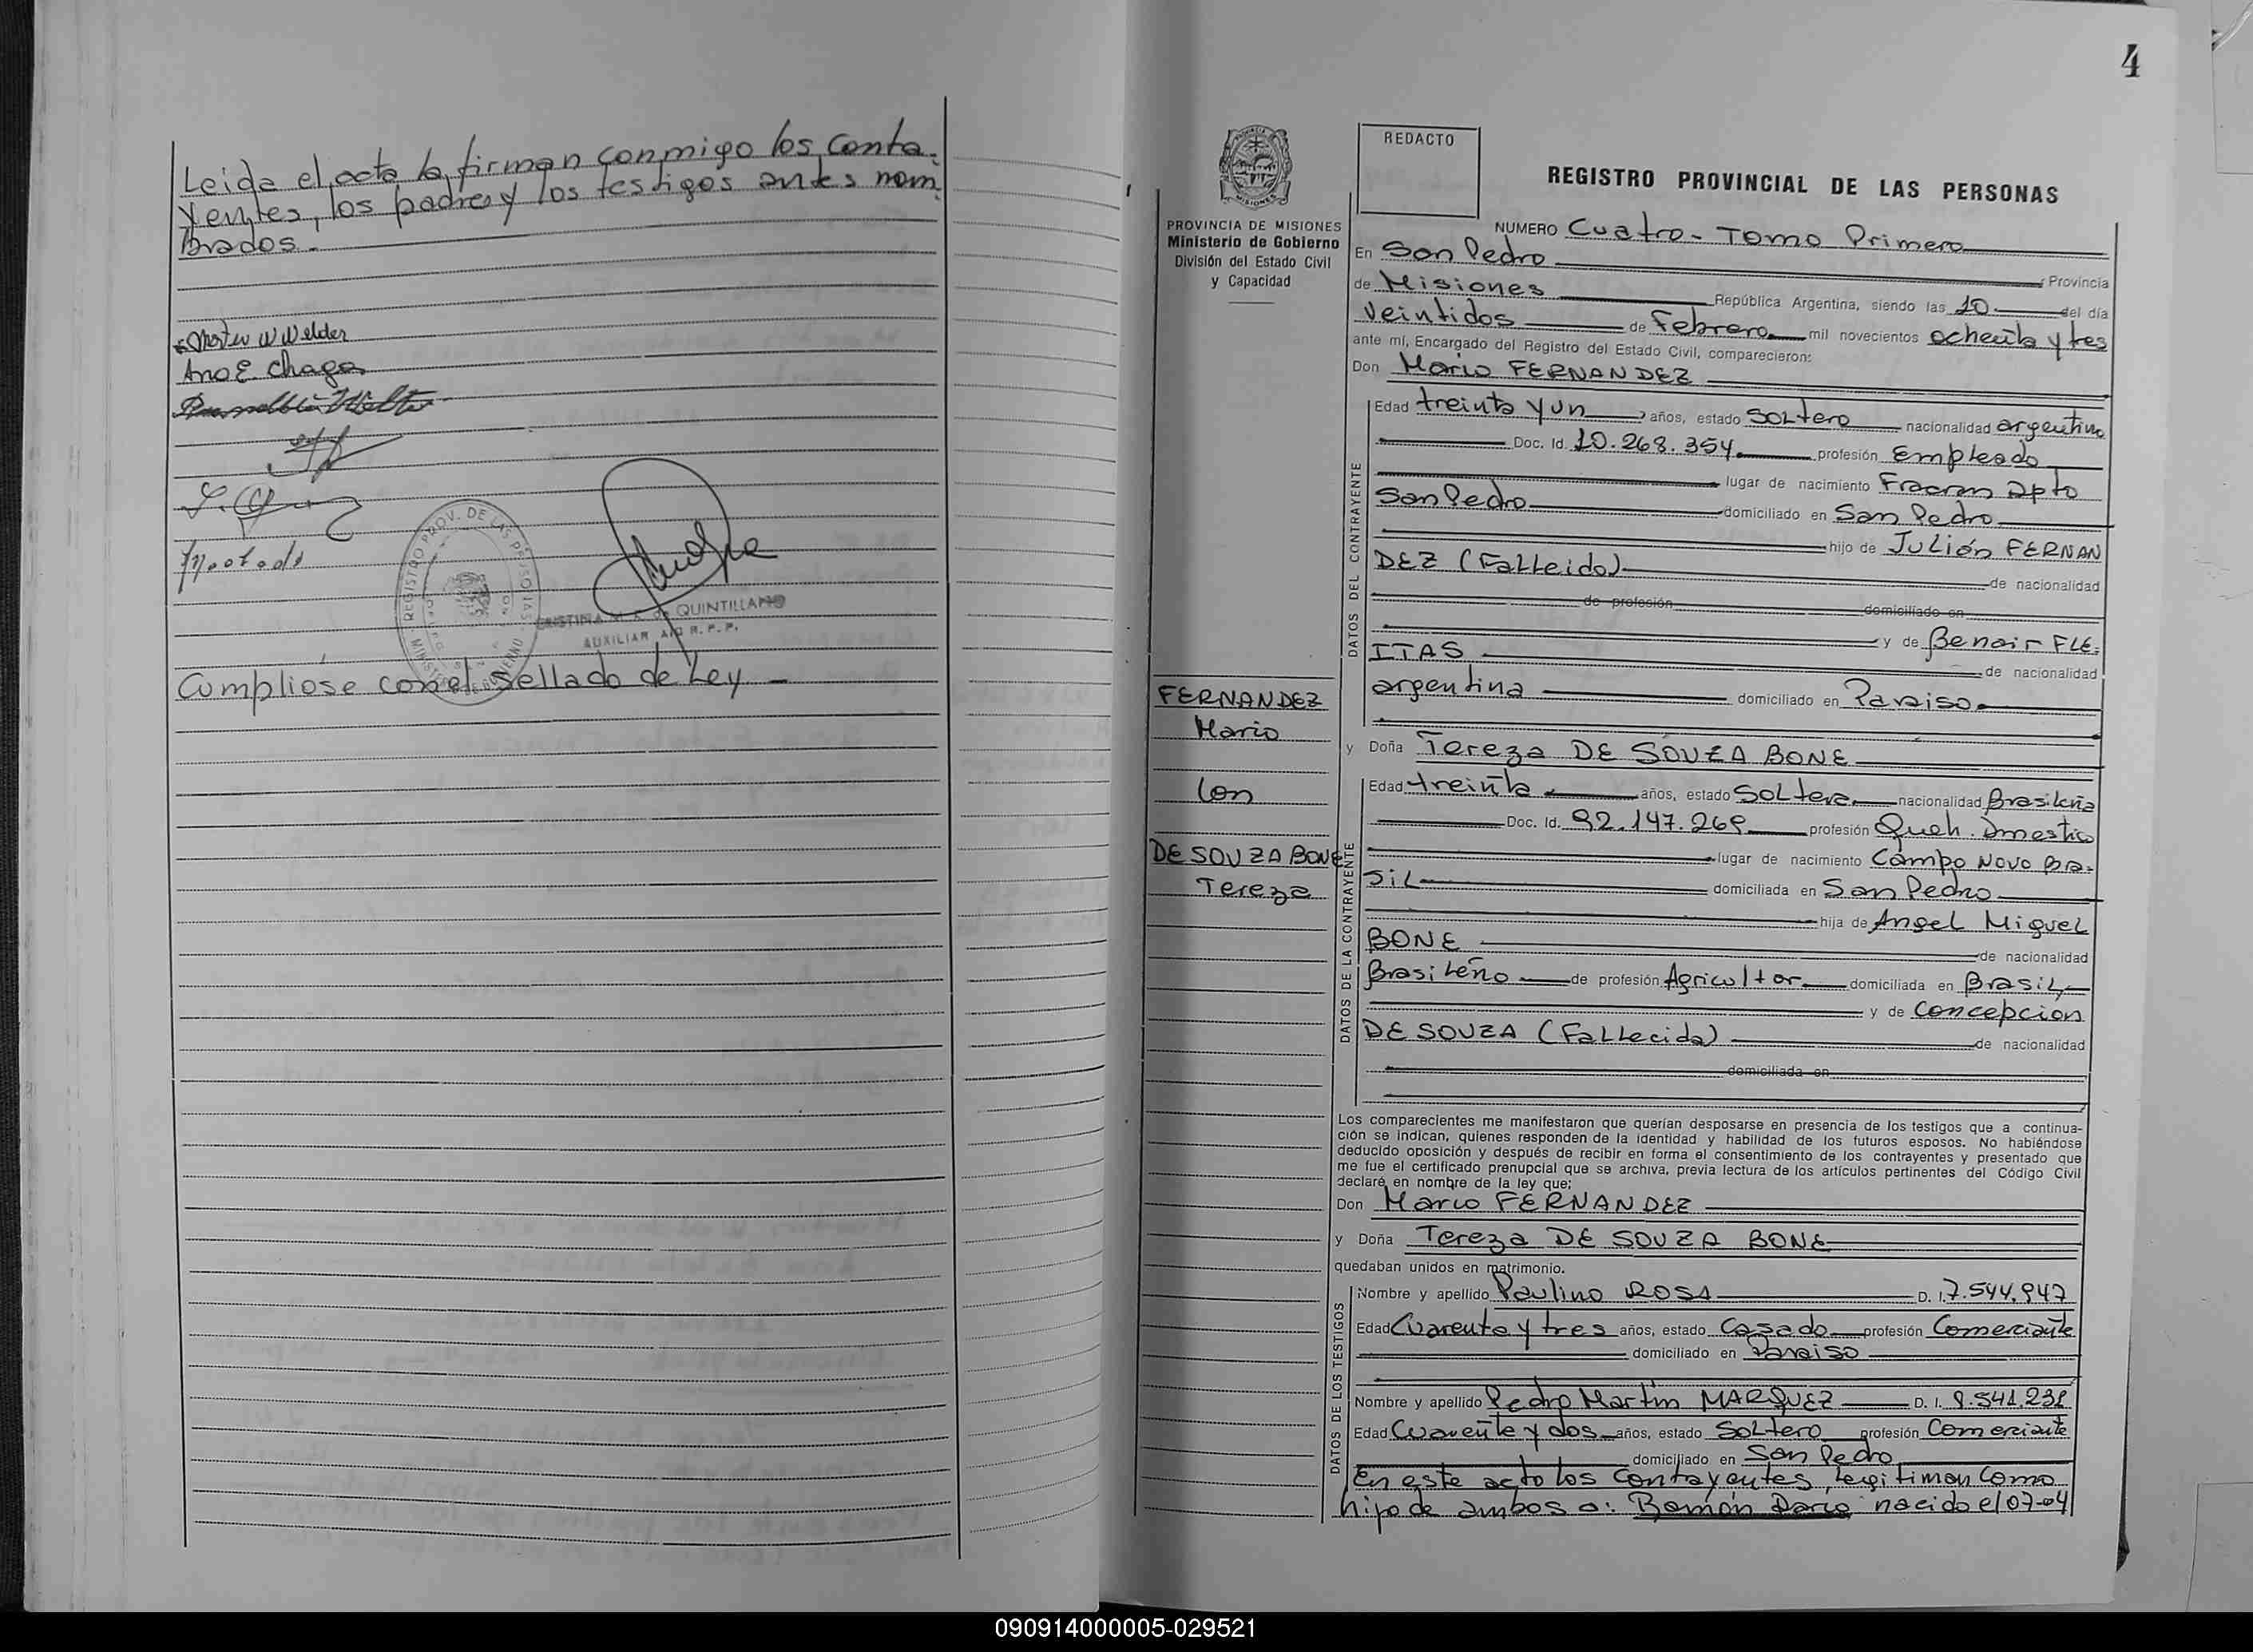 Leida el acta la firman conmigo los contra-
yentes, los padres y los testigos antes nom-
brados.-
Ana E. Chaga
REGISTRO PROV. DE LAS PERSONAS
QUINTILLANO
AUXILIAR
Cumpliose con el Sellado de Ley -
4
REDACTO
REGISTRO PROVINCIAL DE LAS PERSONAS
MISIONES
PROVINCIA DE MISIONES
Ministerio de Gobierno
División del Estado Civil
y Capacidad
FERNANDEZ
Mario
Con
DE SOUZA BONE
Tereza
NUMERO Cuatro- Tomo Primero
En San Pedro Provincia
de Misiones República Argentina, siendo las 10 del día
Veintidos de Febrero mil novecientos ochenta y tres
ante mí, Encargado del Registro del Estado Civil, comparecieron:
Don Mario FERNANDEZ
DATOS DEL CONTRAYENTE
Edad treinta y un años, estado Soltero nacionalidad argentino
Doc. Id. 10.268.354 profesión Empleado
lugar de nacimiento Fracran Dpto
San Pedro domiciliado en San Pedro
hijo de Julián FERNAN
DEZ (Falleido) de nacionalidad
de profesión domiciliado en
y de Benair FLE-
ITAS de nacionalidad
argentina domiciliado en Paraiso
y Doña Tereza DE SOUZA BONE
DATOS DE LA CONTRAYENTE
Edad treinta años, estado Soltera nacionalidad Brasileña
Doc. Id. 92.147.269 profesión Queh. Dmestico
lugar de nacimiento Campo Novo Bra-
sil domiciliada en San Pedro
hija de Angel Miguel
BONE de nacionalidad
Brasileño de profesión Agricultor domiciliada en Brasil
y de Concepcion
DE SOUZA (Fallecida) de nacionalidad
domiciliada en
Los comparecientes me manifestaron que querían desposarse en presencia de los testigos que a continua-
ción se indican, quienes responden de la identidad y habilidad de los futuros esposos. No habiéndose
deducido oposición y después de recibir en forma el consentimiento de los contrayentes y presentado que
me fue el certificado prenupcial que se archiva, previa lectura de los artículos pertinentes del Código Civil
declaré en nombre de la ley que:
Don Mario FERNANDEZ
y Doña Tereza DE SOUZA BONE
quedaban unidos en matrimonio.
DATOS DE LOS TESTIGOS
Nombre y apellido Paulino ROSA D. I. 7.544.947
Edad Cuarenta y tres años, estado Casado profesión Comerciante
domiciliado en Paraiso
Nombre y apellido Pedro Martín MARQUEZ D. I. 8.541.238
Edad Cuarenta y dos años, estado Soltero profesión Comerciante
domiciliado en San Pedro
En este acto los Contrayentes, legitiman como
hijo de ambos a: Ramón Dario nacido el 07-04
090914000005-029521